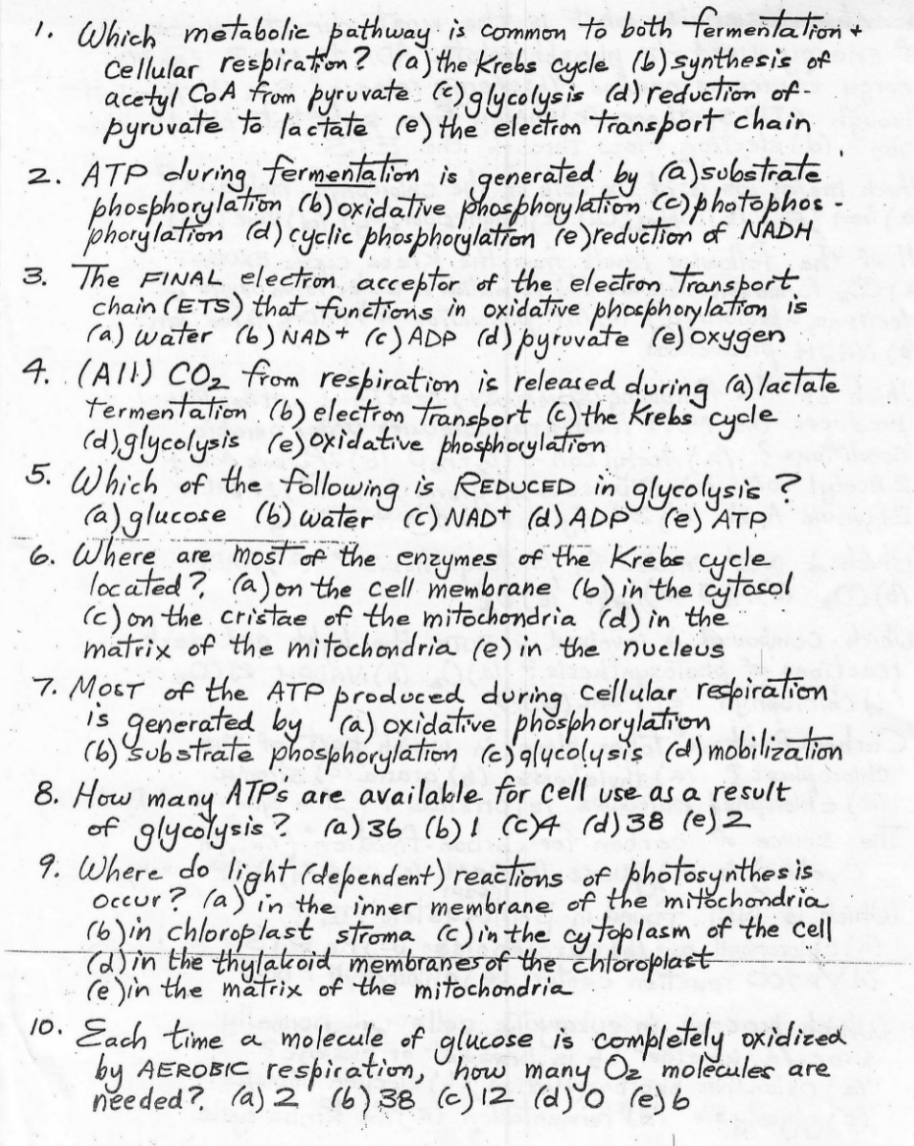 1. Which metabolic pathway is common to both fermentation +
Cellular respiration? (a) the Krebs cycle (b) synthesis of
acetyl CoA from pyruvate (c) glycolysis (d) reduction of
pyruvate to lactate (e) the electron transport chain
2. ATP during fermentation is generated by (a) substrate
phosphorylation (b) oxidative phosphorylation (c) photophos-
phorylation (d) cyclic phosphorylation (e) reduction of NADH
3. The FINAL electron acceptor of the electron transport
chain (ETS) that functions in oxidative phosphorylation is
(a) water (b) NAD+ (c) ADP (d) pyruvate (e) oxygen
4. (All) CO2 from respiration is released during (a) lactate
fermentation (b) electron transport (c) the Krebs cycle
(d) glycolysis (e) oxidative phosphorylation
5. Which of the following is REDUCED in glycolysis?
(a) glucose (b) water (c) NAD+ (d) ADP (e) ATP
6. Where are most of the enzymes of the Krebs cycle
located? (a) on the cell membrane (b) in the cytosol
(c) on the cristae of the mitochondria (d) in the
matrix of the mitochondria (e) in the nucleus
7. MOST of the ATP produced during cellular respiration
is generated by (a) oxidative phosphorylation
(b) substrate phosphorylation (c) glycolysis (d) mobilization
8. How many ATPs are available for cell use as a result
of glycolysis? (a) 36 (b) 1 (c) 4 (d) 38 (e) 2
9. Where do light (dependent) reactions of photosynthesis
occur? (a) in the inner membrane of the mitochondria
(b) in chloroplast stroma (c) in the cytoplasm of the cell
(d) in the thylakoid membranes of the chloroplast
(e) in the matrix of the mitochondria
10. Each time a molecule of glucose is completely oxidized
by AEROBIC respiration, how many O2 molecules are
needed? (a) 2 (b) 38 (c) 12 (d) 0 (e) 6